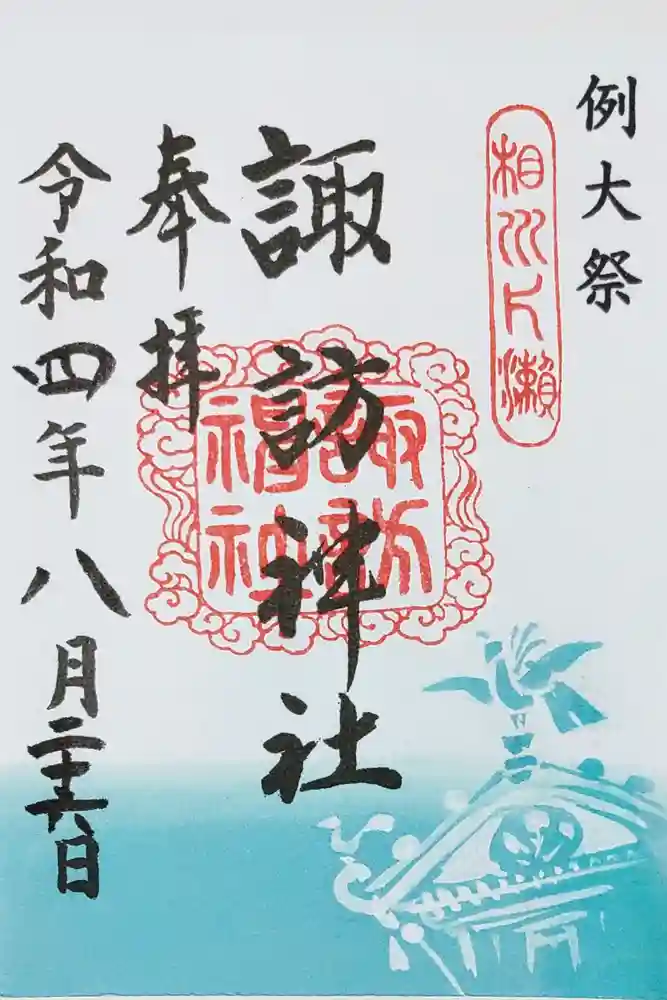 例大祭
相州片瀨
諏訪神社
諏訪神社
奉拝
令和四年八月二十六日